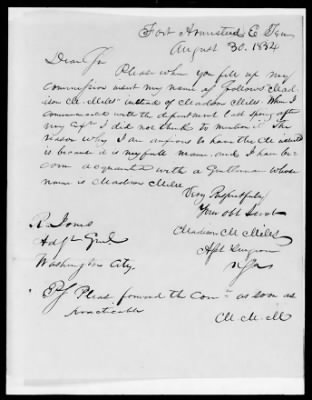 Fort Armstead E Tenn
August 30. 1834
Dear Sir
Please when you fill up my
commission insert my name as follows Mad-
ison M. Miles intead of Maadson Miles. When I
communicated with the department last spring after
my I did not think to mention it. The
reason why I am anxious to have the M added
is because it is my full name, and I have be-
com acquanted with a Gentleman whose
name is Madison Miles.
Very Respectfully
Your Obt Servt
Madison M Miles
Asst Surgeon
R. Jones
Adjt Genl
Washington City.
PS Pleas forward the Comn as soon as
practicable
M. M. M